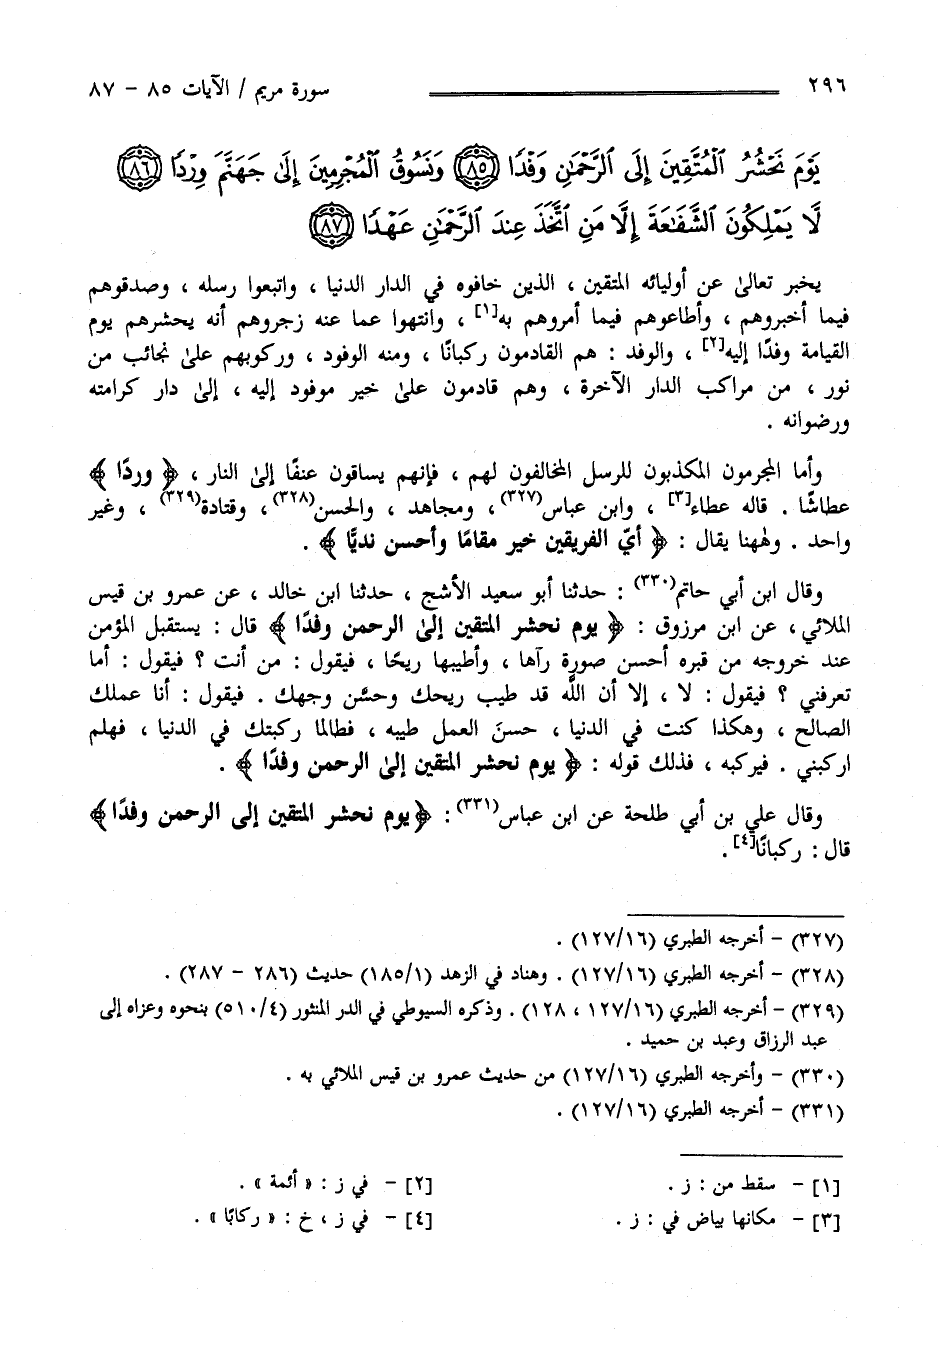 ٢٩٦ سورة مريم / الآيات ٨٥ - ٨٧
يَوْمَ نَحْشُرُ ٱلْمُتَّقِينَ إِلَى ٱلرَّحْمَٰنِ وَفْدًا ﴿٨٥﴾ وَنَسُوقُ ٱلْمُجْرِمِينَ إِلَىٰ جَهَنَّمَ وِرْدًا ﴿٨٦﴾
لَّا يَمْلِكُونَ ٱلشَّفَٰعَةَ إِلَّا مَنِ ٱتَّخَذَ عِندَ ٱلرَّحْمَٰنِ عَهْدًا ﴿٨٧﴾
يخبر تعالىٰ عن أوليائه المتقين ، الذين خافوه في الدار الدنيا ، واتبعوا رسله ، وصدقوهم
فيما أخبروهم ، وأطاعوهم فيما أمروهم به[١] ، وانتهوا عما عنه زجروهم أنه يحشرهم يوم
القيامة وفدًا إليه[٢] ، والوفد : هم القادمون ركبانًا ، ومنه الوفود ، وركوبهم علىٰ نجائب من
نور ، من مراكب الدار الآخرة ، وهم قادمون علىٰ خير موفود إليه ، إلىٰ دار كرامته
ورضوانه .
وأما المجرمون المكذبون للرسل المخالفون لهم ، فإنهم يساقون عنفًا إلىٰ النار ، ﴿ وردًا ﴾
عطاشًا . قاله عطاء[٣] ، وابن عباس(٣٢٧) ، ومجاهد ، والحسن(٣٢٨) ، وقتادة(٣٢٩) ، وغير
واحد . ولهٰهنا يقال : ﴿ أيّ الفريقين خير مقامًا وأحسن نديًّا ﴾ .
وقال ابن أبي حاتم(٣٣٠) : حدثنا أبو سعيد الأشج ، حدثنا ابن خالد ، عن عمرو بن قيس
الملائي ، عن ابن مرزوق : ﴿ يوم نحشر المتقين إلىٰ الرحمن وفدًا ﴾ قال : يستقبل المؤمن
عند خروجه من قبره أحسن صورة رآها ، وأطيبها ريحًا ، فيقول : من أنت ؟ فيقول : أما
تعرفني ؟ فيقول : لا ، إلا أن اللَّه قد طيب ريحك وحسَّن وجهك . فيقول : أنا عملك
الصالح ، وهكذا كنت في الدنيا ، حسنَ العمل طيبه ، فطالما ركبتك في الدنيا ، فهلم
اركبني . فيركبه ، فذلك قوله : ﴿ يوم نحشر المتقين إلىٰ الرحمن وفدًا ﴾ .
وقال علي بن أبي طلحة عن ابن عباس(٣٣١) : ﴿يوم نحشر المتقين إلى الرحمن وفدًا﴾
قال : ركبانًا[٤] .
(٣٢٧) - أخرجه الطبري (١٢٧/١٦) .
(٣٢٨) - أخرجه الطبري (١٢٧/١٦) . وهناد في الزهد (١٨٥/١) حديث (٢٨٦ - ٢٨٧) .
(٣٢٩) - أخرجه الطبري (١٢٧/١٦ ، ١٢٨) . وذكره السيوطي في الدر المنثور (٥١٠/٤) بنحوه وعزاه إلى
عبد الرزاق وعبد بن حميد .
(٣٣٠) - وأخرجه الطبري (١٢٧/١٦) من حديث عمرو بن قيس الملائي به .
(٣٣١) - أخرجه الطبري (١٢٧/١٦) .
[١] - سقط من : ز . [٢] - في ز : « أئمة » .
[٣] - مكانها بياض في : ز . [٤] - في ز ، خ : « ركابًا » .